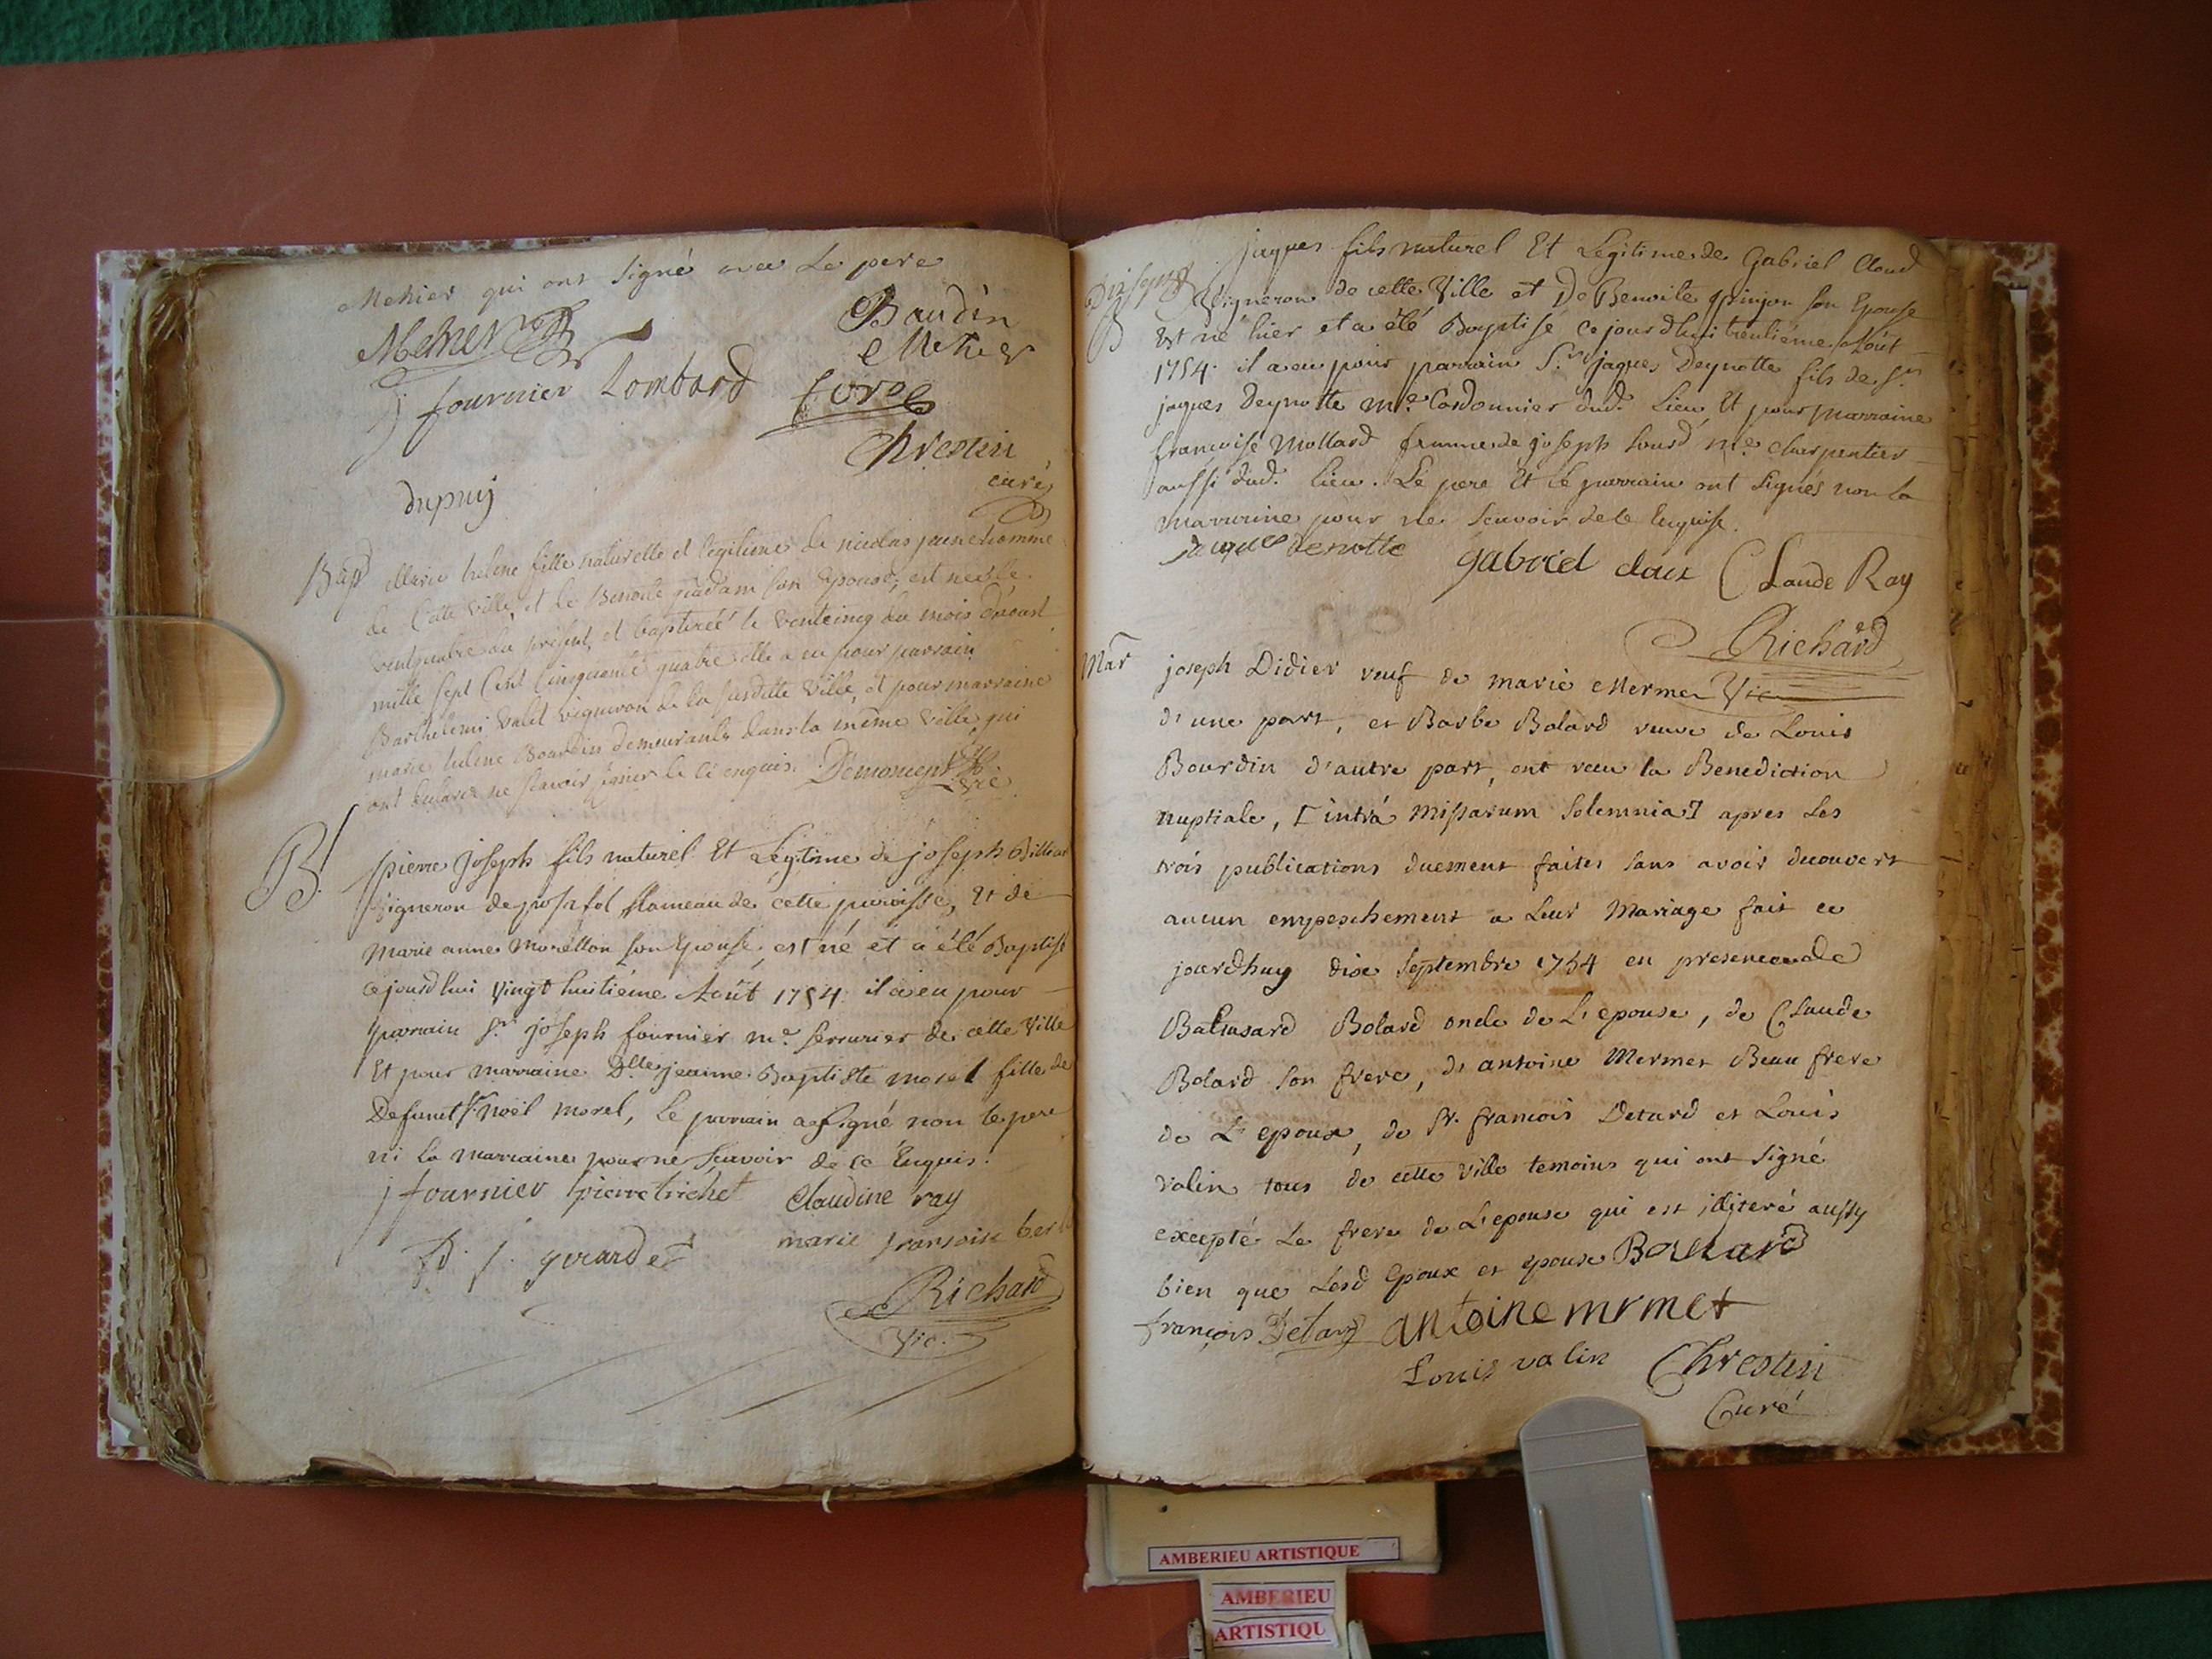 Mehier qui ont signé avec Le pere
Mehier
Baudin
Mehier
j fournier Lombard
Chrestin
curé
dupuij
Bap
Marie helene fille naturelle et légitime de nicolas jeune homme
de Cette Ville, et de Benoite son Epouse, est née le
vent quatre du présent, et baptiséé le ventcinq du mois daoust
mille sept Cent Cinquante quatre elle a eu pour parrain
Barthelemi Valet vigneron de la susditte Ville, et pour marraine
marie helene Bourdin demeurants dans la même Ville, qui
ont déclaré ne scavoir signer de ce enquis. Demoment
Vic
B.
pierre joseph fils naturel Et Légitime de joseph Billion
Vigneron de posafol hameau de cette paroisse, Et de
Marie anne Morellon son Epouse, est né et a été Baptisé
cejourd'hui Vingt huitiéme Août 1754. il a eu pour
parrain Sr. joseph fournier me. serrurier de cette Ville
Et pour marraine Dlle jeanne Baptiste morel fille de
Defunct Sr. noël morel, Le parrain a signé non le pere
ni la marraine pour ne scavoir de ce Enquis.
j fournier pierre trichet Claudine ray
marie fransoise ber
girardet
Richard
Vic.
jaques fils naturel Et Legitime de Gabriel Cloud
B
Vigneron de cette Ville et De Benoite pinjon son Epouse
Est né hier et a été Baptisé ce jourd'hui trentiéme Août
1754. il a eu pour parrain Sr. jaques Deynotte fils de Sr.
jaques Deynotte me. Cordonnier dud. Lieu Et pour marraine
francoise Mollard femme de joseph Lourd me. charpentier
aussi dud. lieu. Le pere Et le parrain ont signés non la
marraine pour ne scavoir de ce Enquise.
jaques denotte gabriel cloux Claude Ray
Richard
Vic
Mar
joseph Didier veuf de marie Mermet
d'une part, et Barbe Bolard veuve de Louis
Bourdin d'autre part, ont recu la Benediction
nuptiale, [intrá Missarum Solemnia] apres les
trois publications duement faites sans avoir decouvert
aucun empeschement a leur Mariage fait ce
jourdhuy dix Septembre 1754 en presence de
Baltasard Bolard oncle de L'epouse, de Claude
Bolard son frere, d'antoine Mermet Beau frere
de L'epoux, de Sr. francois Detard et Louis
valin tous de cette ville temoins qui ont signé
excepté Le frere de L'epouse qui est illiteré aussy
bien que Lesd Epoux et epouse Bollard
françois Detard antoine mrmet
Louis valin Chrestin
Curé
AMBERIEU ARTISTIQUE
AMBERIEU
ARTISTIQU